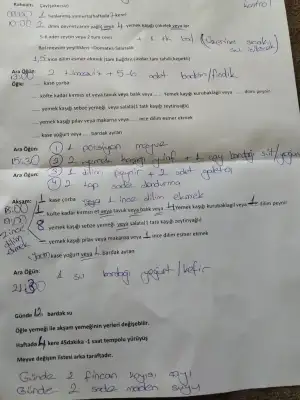 Kahvaltı: Çay(şekersiz)
1 haşlanmış yumurta
10:00 2 dilim peynir
yemek kaşığı çökelek veya lor
5-6 adet zeytin veya 2 tam ceviz
+ 1 tk bal
Bol mevsim yeşillikleri -Domates-Salatalık
1,5 ince dilim esmer ekmek
Ara Öğün:
5-6 adet badem/fındık
Öğle: ..... kase çorba
..... köfte kadar kırmızı et veya tavuk veya balık veya ..... Yemek kaşığı kurubaklagil veya ..... dilim peynir
..... yemek kaşığı sebze yemeği veya salata(1 tatlı kaşığı zeytinyağlı)
..... yemek kaşığı pilav veya makarna veya..... ince dilim esmer ekmek
..... kase yoğurt veya ..... bardak ayran
Ara Öğün: ① 1 porsiyon meyve
15:30 ② 2 yemek kaşığı yulaf + 1 çay bardağı süt/yoğurt
Ara Öğün: ③ 1 dilim peynir + 2 adet galeta
④ 2 top sade dondurma
Akşam: 1 kase çorba veya 1 ince dilim ekmek
18:00 köfte kadar kırmızı et veya tavuk veya balık veya 4 Yemek kaşığı kurubaklagil veya 1 dilim peynir
8 yemek kaşığı sebze yemeği veya salata(1 tatlı kaşığı zeytinyağlı)
yemek kaşığı pilav veya makarna veya 1 ince dilim esmer ekmek
kase yoğurt veya 1 bardak ayran
Ara Öğün: 1 su bardağı yoğurt/kefir
21:30
Günde 12 bardak su
Öğle yemeği ile akşam yemeğinin yerleri değişebilir.
Haftada 4 kere 45dakika-1 saat tempolu yürüyüş
Meyve değişim listesi arka taraftadır.
Günde 2 fincan kayısı suyu
Günde 2 sade maden suyu